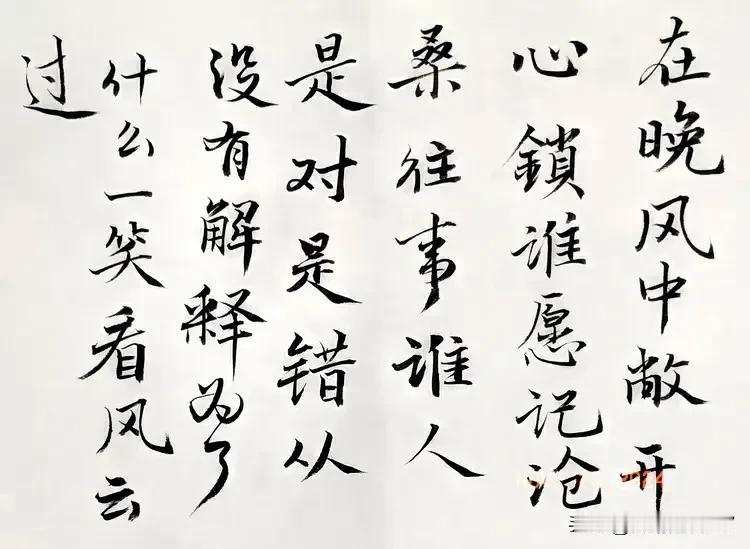 在晚风中敞开
心鎖谁愿记沧
桑往事谁人
是对是错从
没有解释为了
什么一笑看风云
过